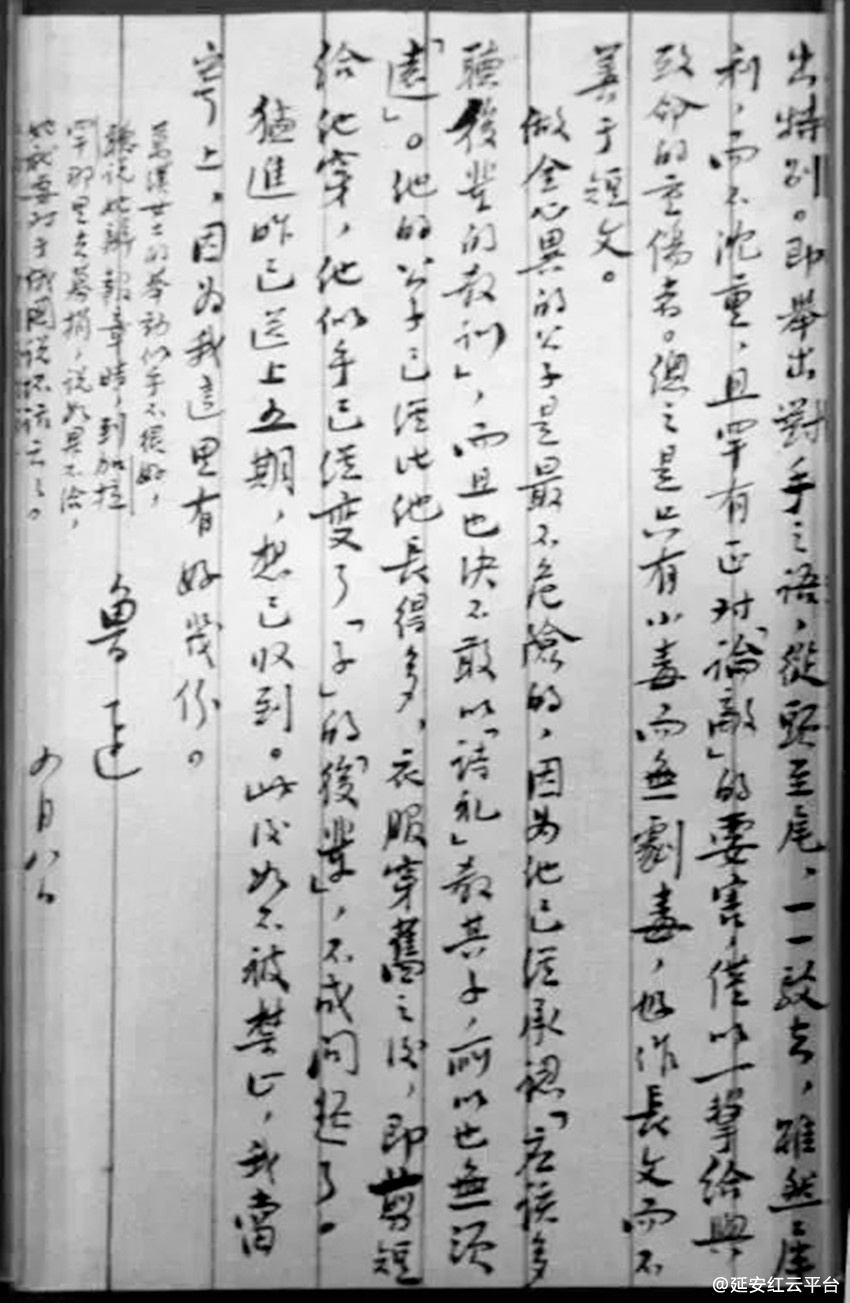 出特别。即舉出對手之語，從頭至尾，一一駁去，雖然犀
利，而不沈重，且罕有正对「論敵」的要害，僅以一擊給與
致命的重傷者。總之是只有小毒而無劇毒，好作長文而不
善于短文。
做金心異的公子是最不危險的，因为他已經承認「应該多
聽後輩的教訓」，而且也決不敢以「詩礼」教其子，所以也無須
「遠」。他的公子已經比他長得多，衣服穿舊之後，即剪短
給他穿，他似乎已經變了「子」的「後輩」，不成問題了。
猛進昨已送上五期，想已收到。此後如不被禁止，我當
寄上，因为我這里有好幾份。
魯迅
四月八日
萬璞女士的舉動似乎不很好，
聽說她辦報章時，到加拉
罕那里去募捐，說如果不给，
她就要对于俄國說坏話云云。
@延安红云平台